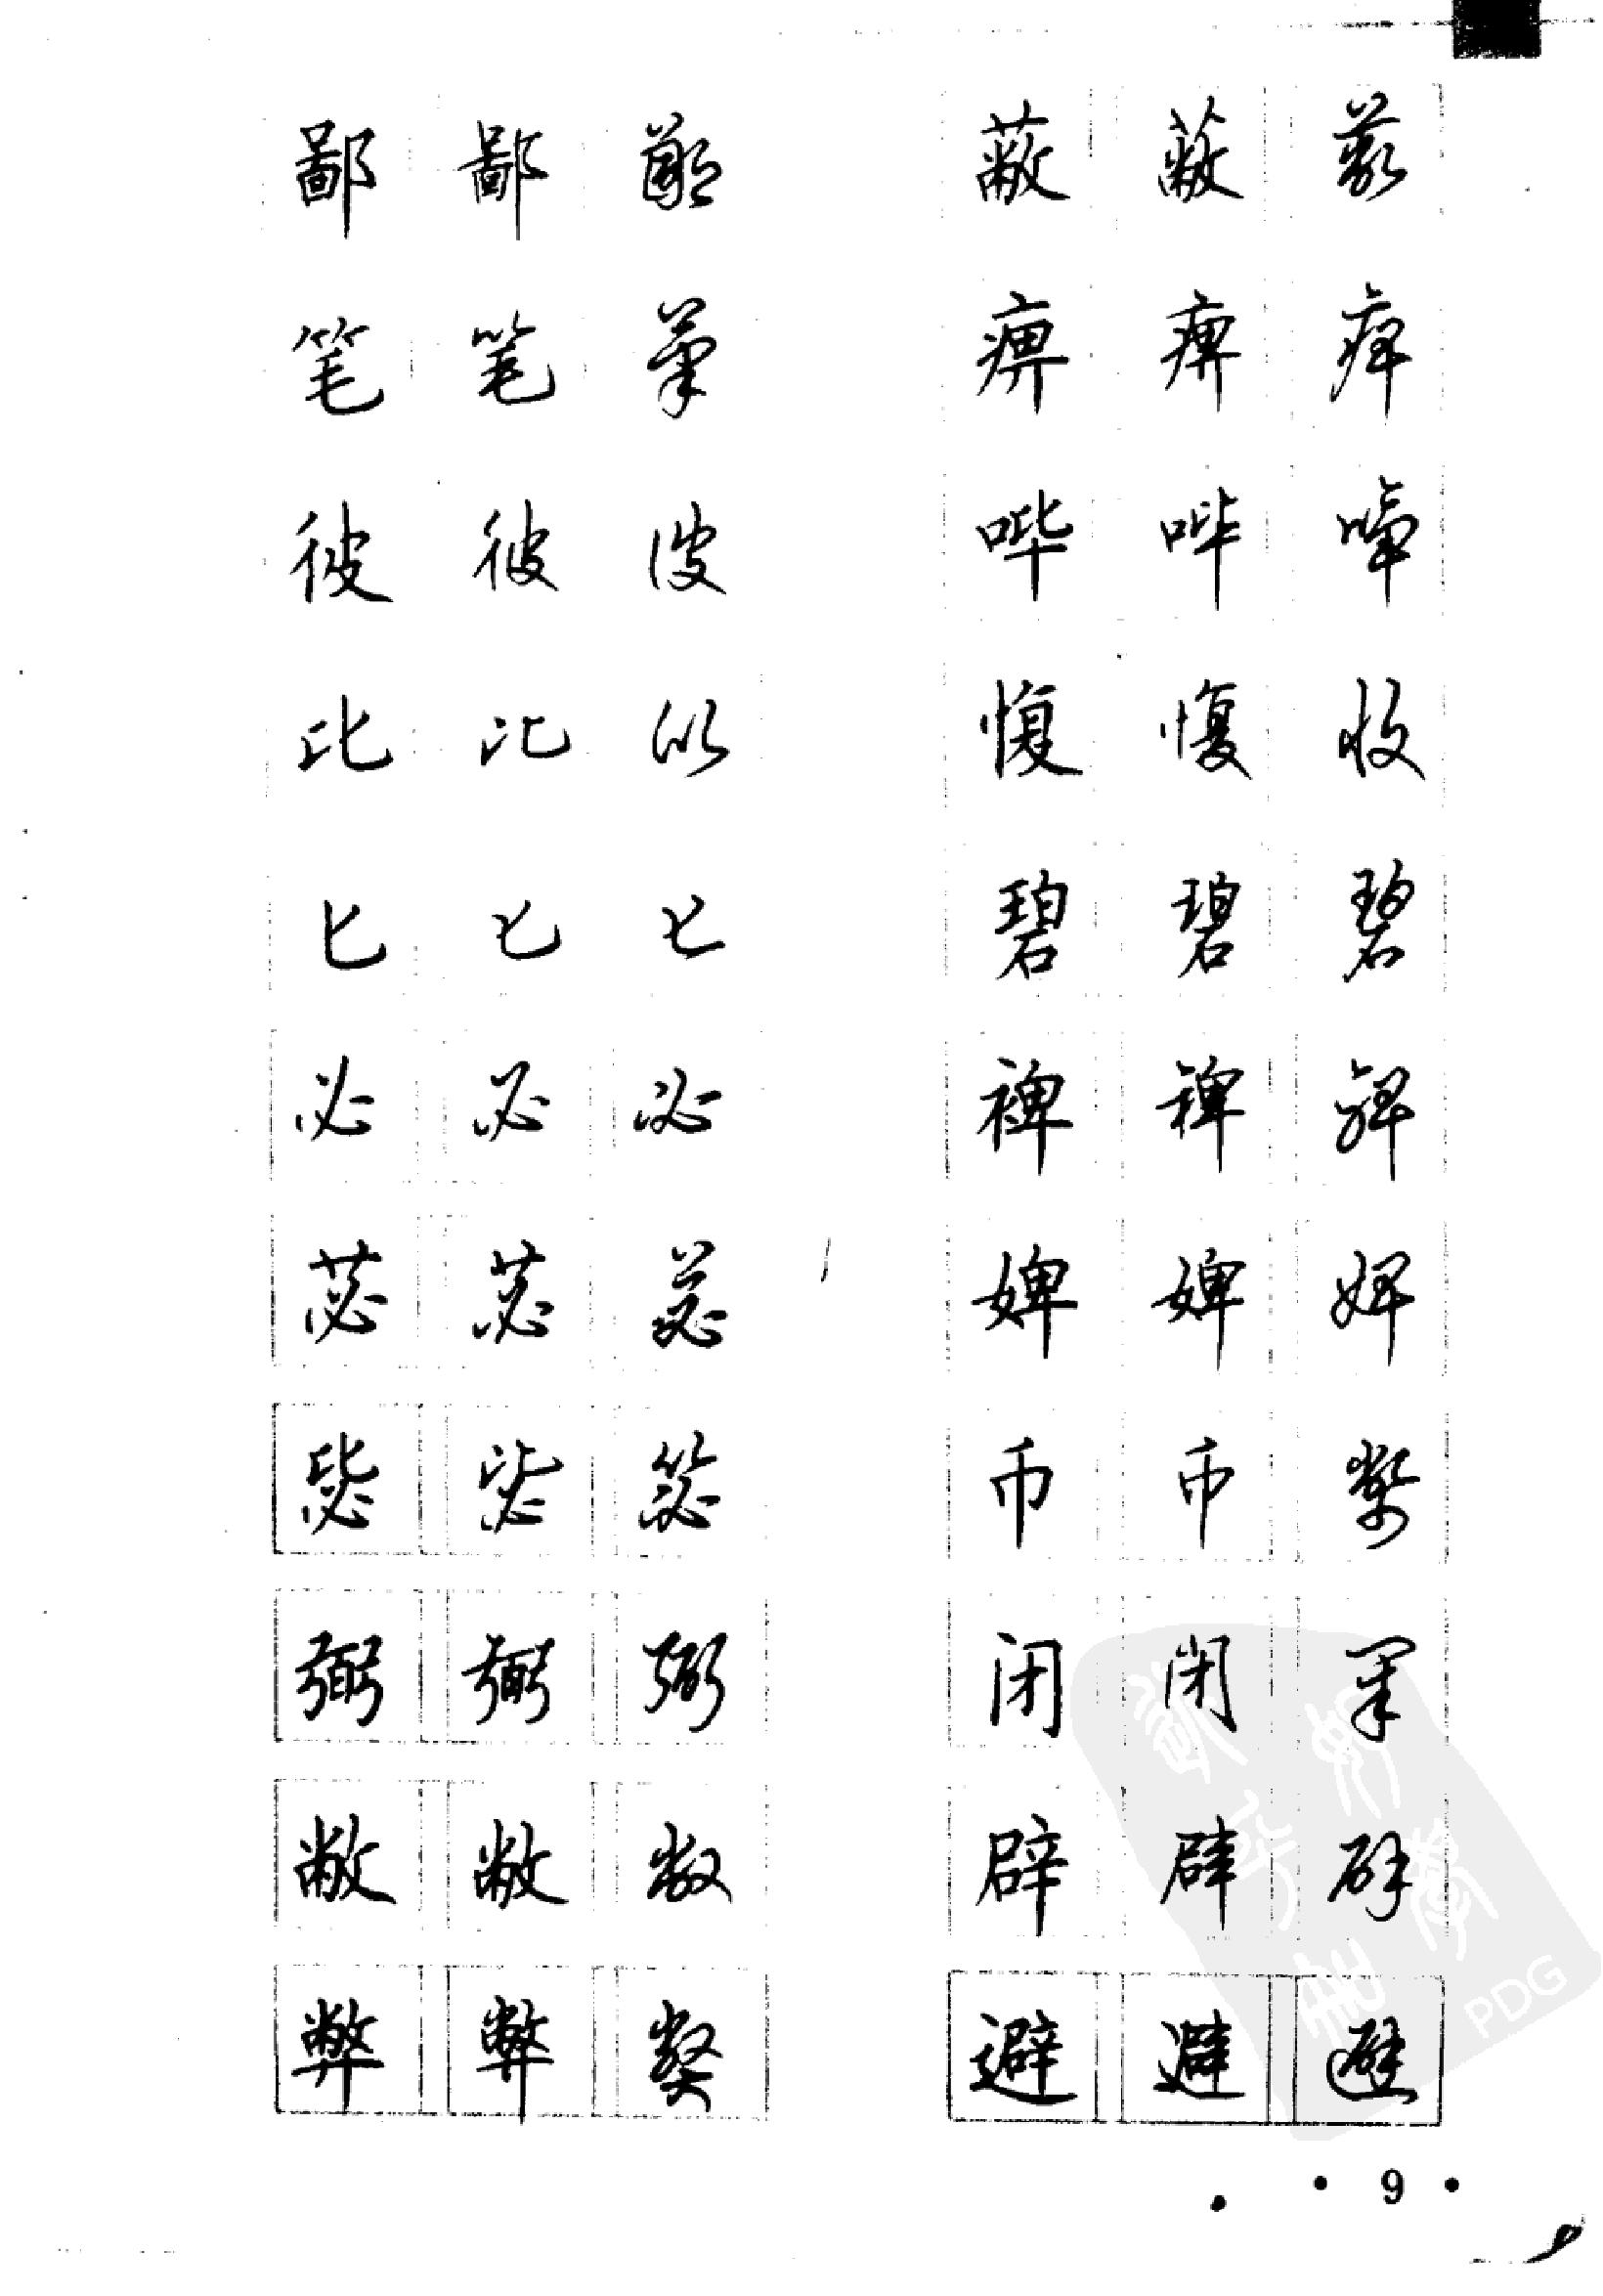 鄙 鄙 鄙 蔽 蔽 蔽
笔 笔 筆 痹 痹 痹
彼 彼 彼 哔 哔 嗶
比 比 比 愎 愎 愎
匕 匕 匕 碧 碧 碧
必 必 必 裨 裨 裨
苾 苾 苾 婢 婢 婢
毖 毖 毖 币 币 幣
弼 弼 弼 闭 闭 闭
敝 敝 敝 辟 辟 辟
弊 弊 弊 避 避 避
PDG
· 9 ·